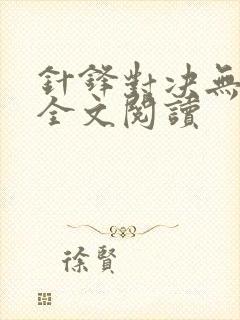 針鋒對决無
全文閱讀
徐賢